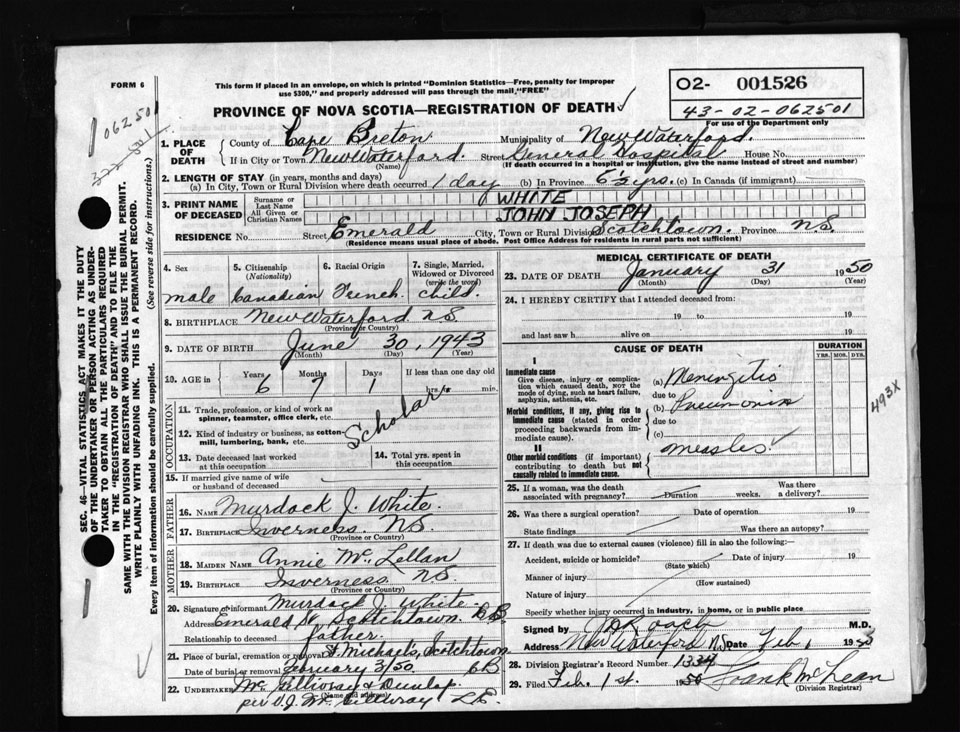 FORM 6
This form if placed in an envelope, on which is printed "Dominion Statistics—Free, penalty for improper
use $300," and properly addressed will pass through the mail, "FREE"
O2- 001526
43-02-062501
For use of the Department only
PROVINCE OF NOVA SCOTIA—REGISTRATION OF DEATH
062501
1. PLACE OF DEATH
County of Cape Breton Municipality of New Waterford.
If in City or Town New Waterford. Street General Hospital House No.
(Name) (If death occurred in a hospital or institution, give the name instead of street and number)
2. LENGTH OF STAY (in years, months and days)
(a) In City, Town or Rural Division where death occurred 1 day (b) In Province 6½ yrs. (c) In Canada (if immigrant)
3. PRINT NAME OF DECEASED
Surname or Last Name WHITE
All Given or Christian Names JOHN JOSEPH
RESIDENCE No. Street Emerald City, Town or Rural Division Scotchtown. Province N.S.
(Residence means usual place of abode. Post Office Address for residents in rural parts not sufficient)
4. Sex
male
5. Citizenship (Nationality)
Canadian
6. Racial Origin
French
7. Single, Married, Widowed or Divorced (write the word)
Child.
8. BIRTHPLACE New Waterford N.S.
(Province or Country)
9. DATE OF BIRTH June 30, 1943
(Month) (Day) (Year)
10. AGE in Years Months Days If less than one day old
6 7 1 hrs. or min.
OCCUPATION
11. Trade, profession, or kind of work as spinner, teamster, office clerk, etc.
Scholar
12. Kind of industry or business, as cotton-mill, lumbering, bank, etc.
13. Date deceased last worked at this occupation
14. Total yrs. spent in this occupation
15. If married give name of wife or husband of deceased
FATHER
16. NAME Murdock J. White.
17. BIRTHPLACE Inverness. N.S.
(Province or Country)
MOTHER
18. MAIDEN NAME Annie Mc Lellan
19. BIRTHPLACE Inverness N.S.
(Province or Country)
20. Signature of informant Murdock J. White.
Address Emerald St. Scotchtown. C.B.
Relationship to deceased father.
21. Place of burial, cremation or removal St. Michaels, Scotchtown
Date of burial or removal February 3/50 C.B
22. Undertaker Mc Gillivray & Dunlap.
(Name and address)
per J. Mc Gillivray
MEDICAL CERTIFICATE OF DEATH
23. DATE OF DEATH January 31 1950
(Month) (Day) (Year)
24. I HEREBY CERTIFY that I attended deceased from:
19 to 19
and last saw h alive on 19
CAUSE OF DEATH
DURATION
YRS. MOS. DYS.
I
Immediate cause
Give disease, injury or complication which caused death, NOT the mode of dying, such as heart failure, asphyxia, asthenia, etc.
(a) Meningitis
due to
Morbid conditions, if any, giving rise to immediate cause (stated in order proceeding backwards from immediate cause).
(b) Pneumonia
due to
(c)
II
Other morbid conditions (if important) contributing to death but not causally related to immediate cause.
Measles
493X
25. If a woman, was the death associated with pregnancy? Duration weeks. Was there a delivery?
26. Was there a surgical operation? Date of operation 19
State findings Was there an autopsy?
27. If death was due to external causes (violence) fill in also the following:—
Accident, suicide or homicide? Date of injury 19
(State which)
Manner of injury
(How sustained)
Nature of injury
Specify whether injury occurred in industry, in home, or in public place
Signed by Roach M.D.
Address New Waterford N.S. Date Feb. 1 1950
28. Division Registrar's Record Number 1334
29. Filed Feb. 1st. 1950 Frank McLean
(Division Registrar)
SEC. 46—VITAL STATISTICS ACT MAKES IT THE DUTY
OF THE UNDERTAKER OR PERSON ACTING AS UNDER-
TAKER TO OBTAIN ALL THE PARTICULARS REQUIRED
IN THE "REGISTRATION OF DEATH" AND TO FILE THE
SAME WITH THE DIVISION REGISTRAR WHO SHALL ISSUE THE BURIAL PERMIT.
WRITE PLAINLY WITH UNFADING INK. THIS IS A PERMANENT RECORD.
Every item of information should be carefully supplied. (See reverse side for instructions.)